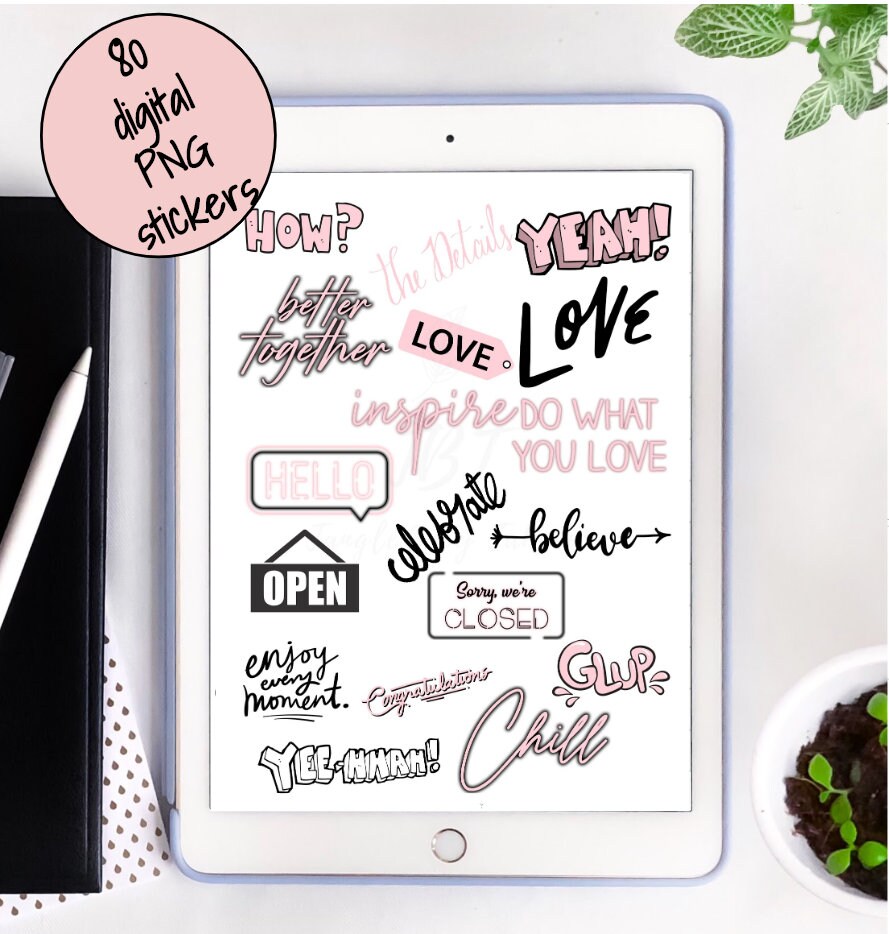 80
digital
PNG
stickers
HOW?
the Details
YEAH!
better
together
LOVE
LOVE
inspire
DO WHAT
YOU LOVE
HELLO
celebrate
believe
OPEN
Sorry, we're
CLOSED
enjoy
every
moment.
Congratulations
GLUP
Chill
YEE-HHAH!